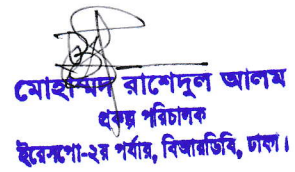 মোহাম্মদ রাশেদুল আলম
প্রকল্প পরিচালক
ইরেসপো-২য় পর্যায়, বিআরডিবি, ঢাকা।